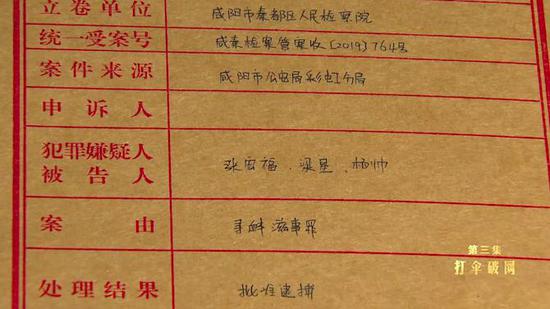 立卷单位 咸阳市秦都区人民检察院
统一受案号 咸秦检案管案收[2019]764号
案件来源 咸阳市公安局彩虹分局
申诉人
犯罪嫌疑人
被告人
张宏福、梁星、杨帅
案由 寻衅滋事罪
处理结果 批准逮捕
第三集
打伞破网